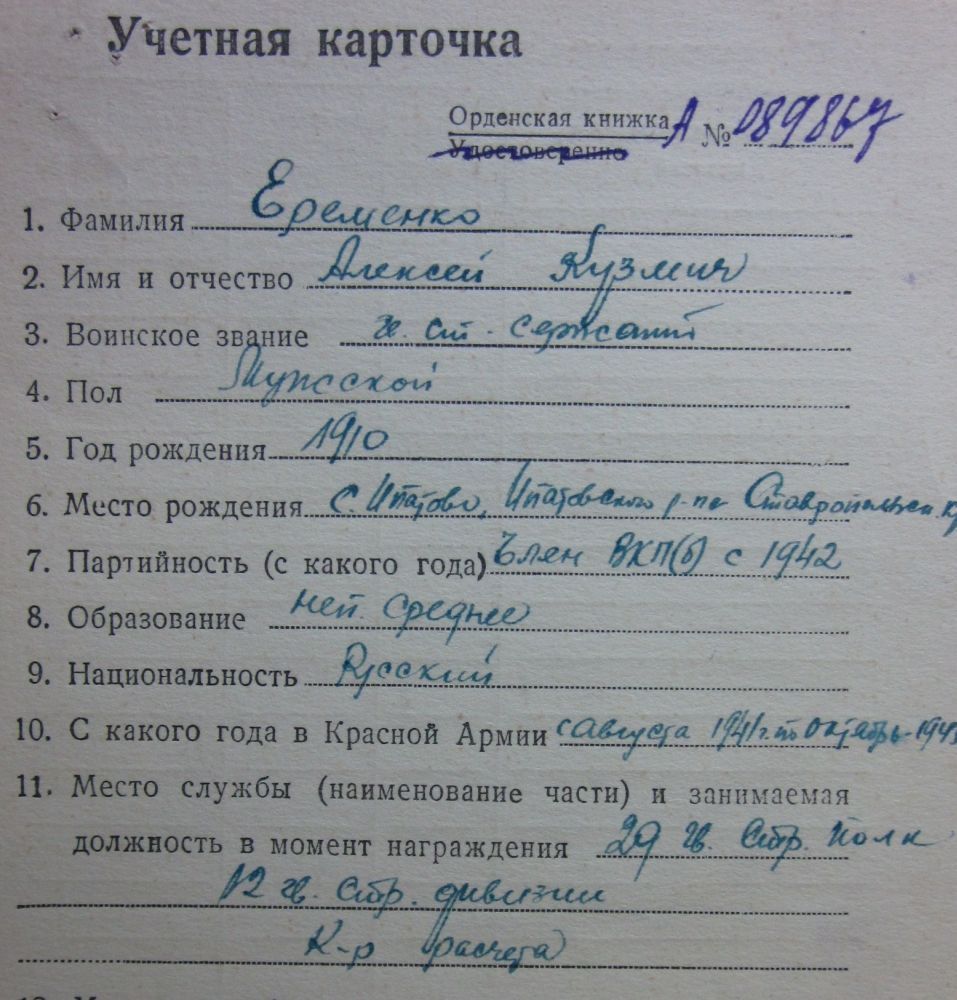 Учетная карточка
Орденская книжка А № 089867
Удостоверение
1. Фамилия Еременко
2. Имя и отчество Алексей Кузмич
3. Воинское звание гв. ст. сержант
4. Пол Мужской
5. Год рождения 1910
6. Место рождения с. Ипатово, Ипатовского р-на Ставропольск. кр
7. Партийность (с какого года) Член ВКП(б) с 1942
8. Образование неп. среднее
9. Национальность Русский
10. С какого года в Красной Армии с августа 1941 г. по октябрь 1945
11. Место службы (наименование части) и занимаемая
должность в момент награждения 29 гв. Стр. полк
12 гв. Стр. дивизии
К-р расчета